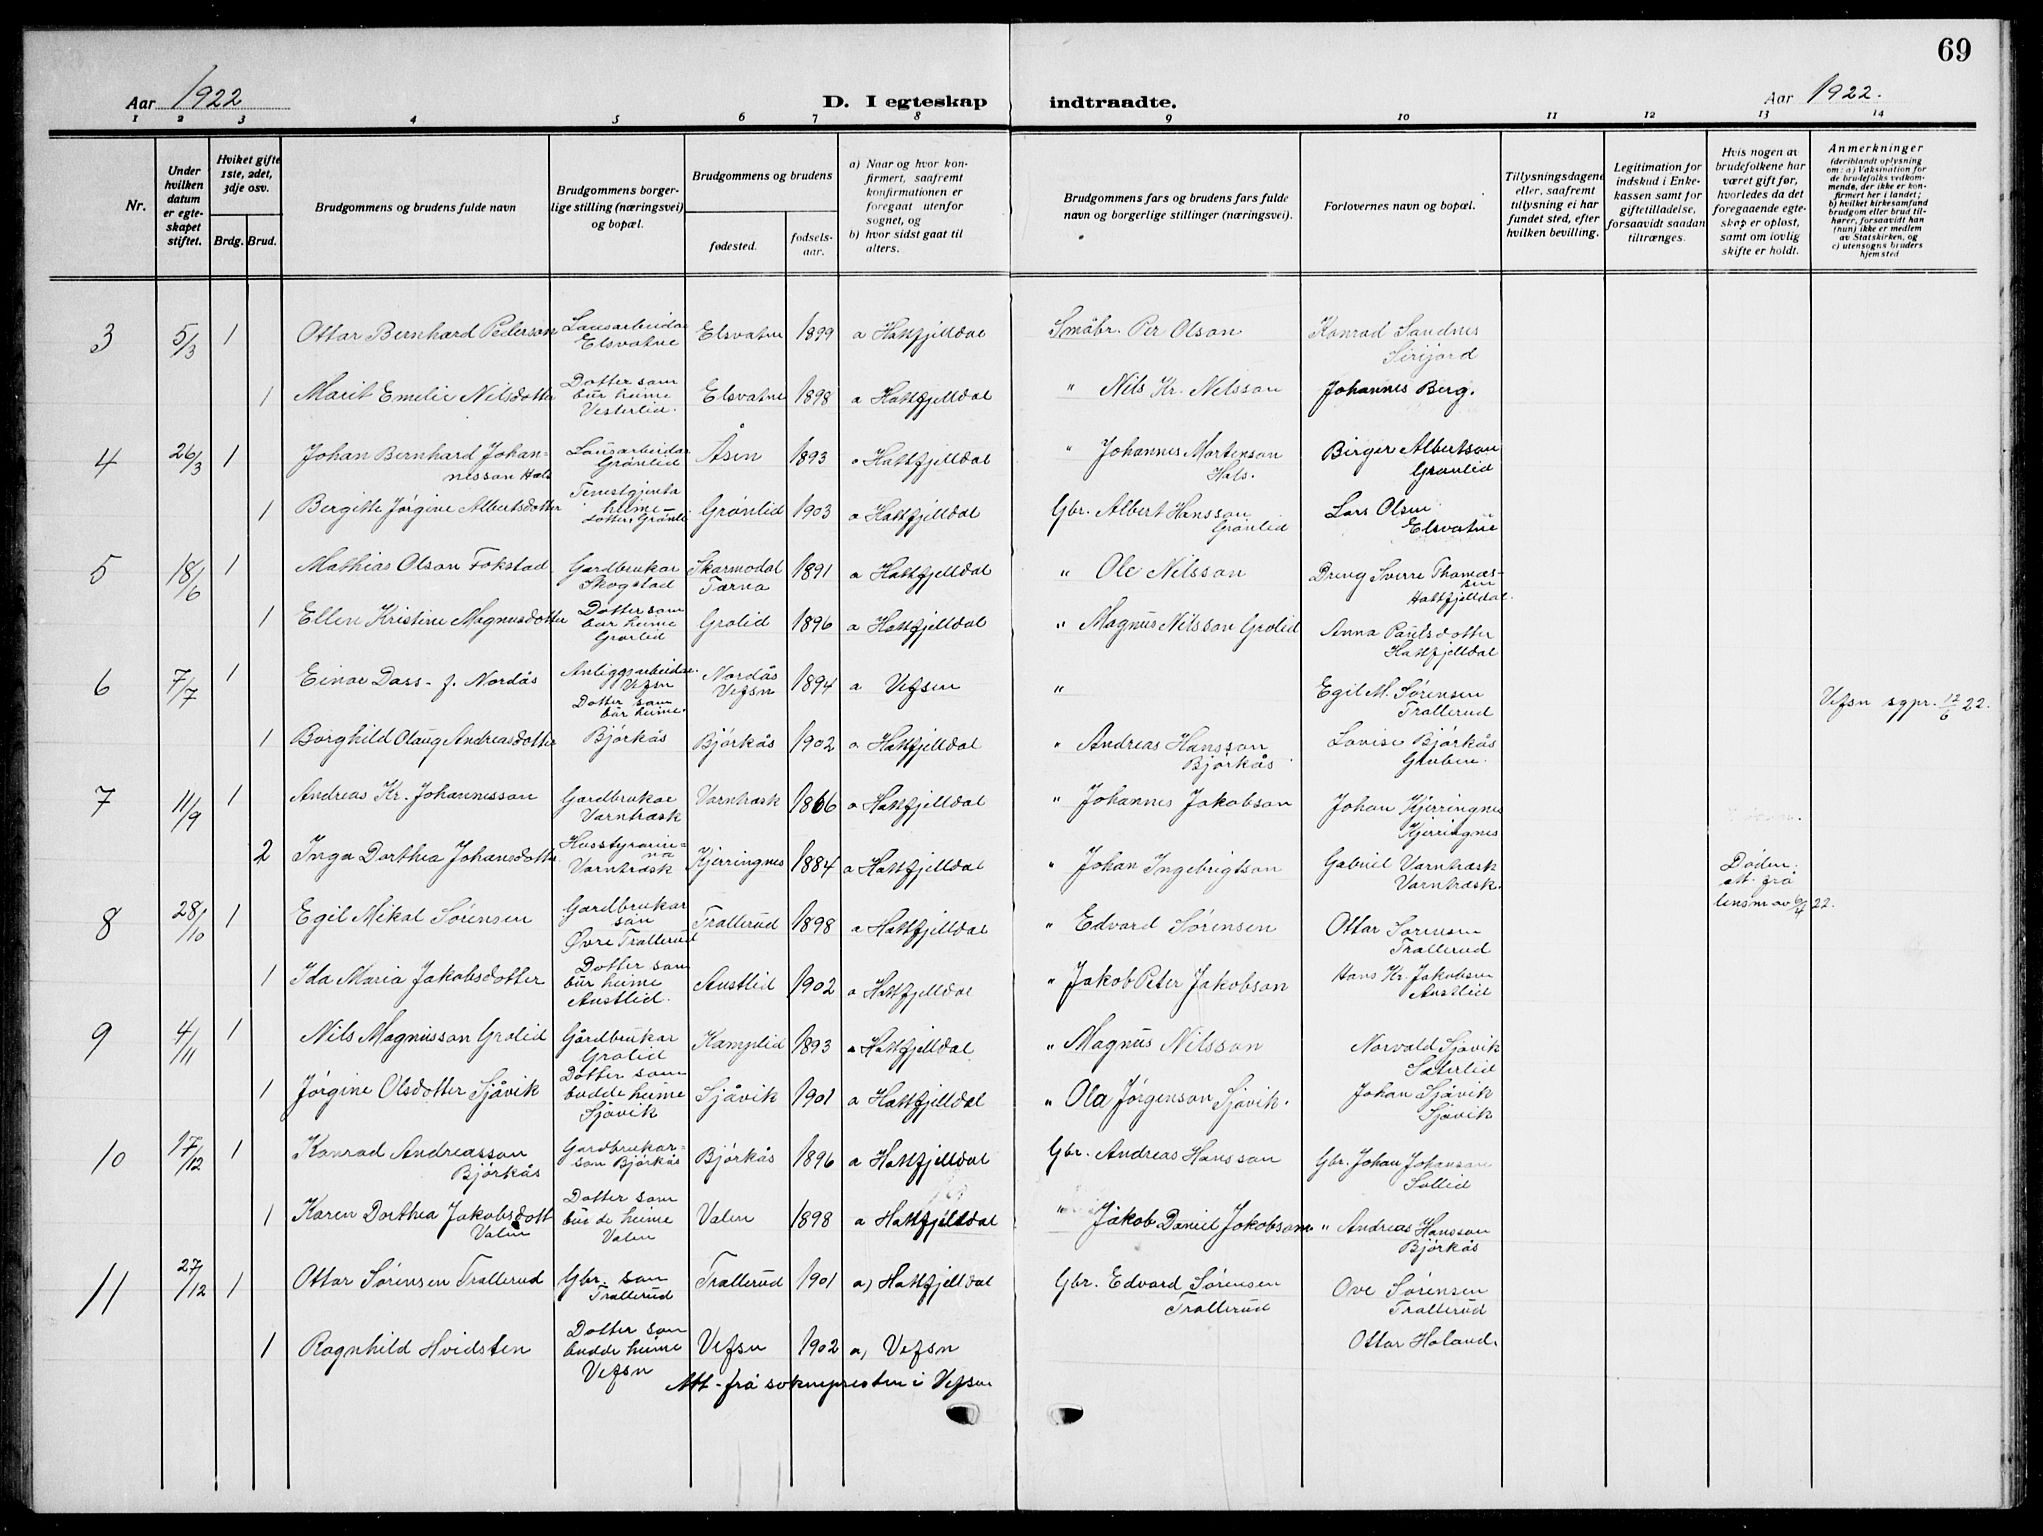 69
Aar 1922 D. I egteskap indtraadte. Aar 1922.
1 2 3 4 5 6 7 8 9 10 11 12 13 14
Nr.
Under hvilken datum er egteskapet stiftet.
Hviket gifte 1ste, 2det, 3dje osv.
Brdg. Brud.
Brudgommens og brudens fulde navn
Brudgommens borgerlige stilling (næringsvei) og bopæl.
Brudgommens og brudens
fødested. fødselsaar.
a) Naar og hvor konfirmert, saafremt konfirmationen er foregaat utenfor sognet, og
b) hvor sidst gaat til alters.
Brudgommens fars og brudens fars fulde navn og borgerlige stillinger (næringsvei).
Forlovernes navn og bopæl.
Tillysningsdagene eller, saafremt tillysning ei har fundet sted, efter hvilken bevilling.
Legitimation for indskud i Enkekassen samt for giftetilladelse, forsaavidt saadan tiltrænges.
Hvis nogen av brudefolkene har været gift før, hvorledes da det foregaaende egteskap er opløst, samt om lovlig skifte er holdt.
Anmerkninger (deriblandt oplysning om: a) Vaksination for de brudefolks vedkommende, der ikke er konfirmert her i landet; b) hvilket kirkesamfund brudgom eller brud tilhører, forsaavidt han (hun) ikke er medlem av Statskirken, og c) utensogns bruders hjemsted
3 5/3 1 Ottar Bernhard Pederson Lausarbeidar Elsvatne Elsvatne 1899 a Hattfjelldal Småbr. Per Olson Konrad Sandnes Sirijord
1 Marit Emelie Nilsdotter Dotter som bur heime Vesterlid. Elsvatne 1898 a Hattfjelldal " Nils Kr. Nilsson Johannes Berg.
4 26/3 1 Johan Bernhard Johannesson Hals Lausarbeidar Grønlid Åsen 1893 a Hattfjelldal " Johannes Mortenson Hals. Birger Albertson Grønlid
1 Bergitte Jørgine Albertsdotter Tenestgjenta heime- Grønlid 1903 a Hattfjelldal Gbr. Albert Hansson Grønlid Lars Olsen Elsvatne
5 18/6 1 Mathias Olson Fokstad Gardbrukar Skogstad Skarmodal Tærna 1891 a Hattfjelldal " Ole Nilsson Dreng Sverre Thomassen Hattfjelldal.
1 Ellen Kristine Magnusdotter Dotter som bur heime Grølid 1896 a Hattfjelldal " Magnus Nilsson Grølid Anna Paulsdotter Hattfjelldal
6 7/7 1 Einar Dass - f. Nordås Anleggsarbeidar Vefsn Nordås Vefsn 1894 a Vefsen " Egil M. Sørensen Trallerud Vefsn sgpr. 12/6 22.
1 Borghild Olaug Andreasdotter Dotter som bur heime. Bjørkås Bjørkås 1902 a Hattfjelldal " Andreas Hansson Bjørkås Lovise Bjørkås Gruben.
7 11/9 1 Andreas Kr. Johannesson Gardbrukar Varntræsk Varntræsk 1866 a Hattfjelldal " Johannes Jakobson Johan Kjerringnes Kjerringnes
2 Inga Dorthea Johansdotter Varntræsk Kjerringnes 1884 a Hattfjelldal " Johan Ingebrigtson Gabriel Varntræsk Varntræsk. Døden. att. frå lensm av 6/4 22.
8 28/10 1 Egil Mikal Sørensen Gardbrukar son Øvre Trallerud Trallerud 1898 a Hattfjelldal " Edvard Sørensen Ottar Sørensen Trallerud
1 Ida Maria Jakobsdotter Dotter som bur heime Austlid. Austlid 1902 a Hattfjeldal " Jakob Peter Jakobson Hans Kr Jakobsen Austlid
9 4/11 1 Nils Magnusson Grølid Gårdbrukar Grølid Kamplid 1893 a Hattfjeldal " Magnus Nilsson Norvald Sjåvik Sæterlid
1 Jørgine Olsdotter Sjåvik Dotter som budde heime Sjåvik Sjåvik 1901 a Hattfjelldal " Ola Jørgenson Sjåvik. Johan Sjåvik Sjåvik
10 17/12 1 Konrad Andreasson Bjørkås Gardbrukarson Bjørkås Bjørkås 1896 a Hattfjelldal Gbr. Andreas Hansson Gbr. Johan Johanson Sollid
1 Karen Dorthea Jakobsdott Valen Dotter som bur de heime Valen Valen 1898 a Hattfjelldal " Jakob Daniel Jakobson " Andreas Hansson Bjørkås
11 27/12 1 Ottar Sørensen Trallerud Gbr. son Trallerud Trallerud 1901 a) Hattfjelldal Gbr. Edvard Sørensen Trallerud Ove Sørensen Trallerud
1 Ragnhild Hvidsten Dotter som budde heime Vefsn Vefsn 1902 a, Vefsn Ottar Holand.
Att. frå soknepresten i Vefsn